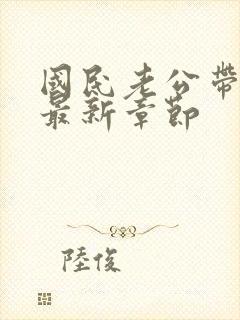 國民老公帶
最新章節
陸俊